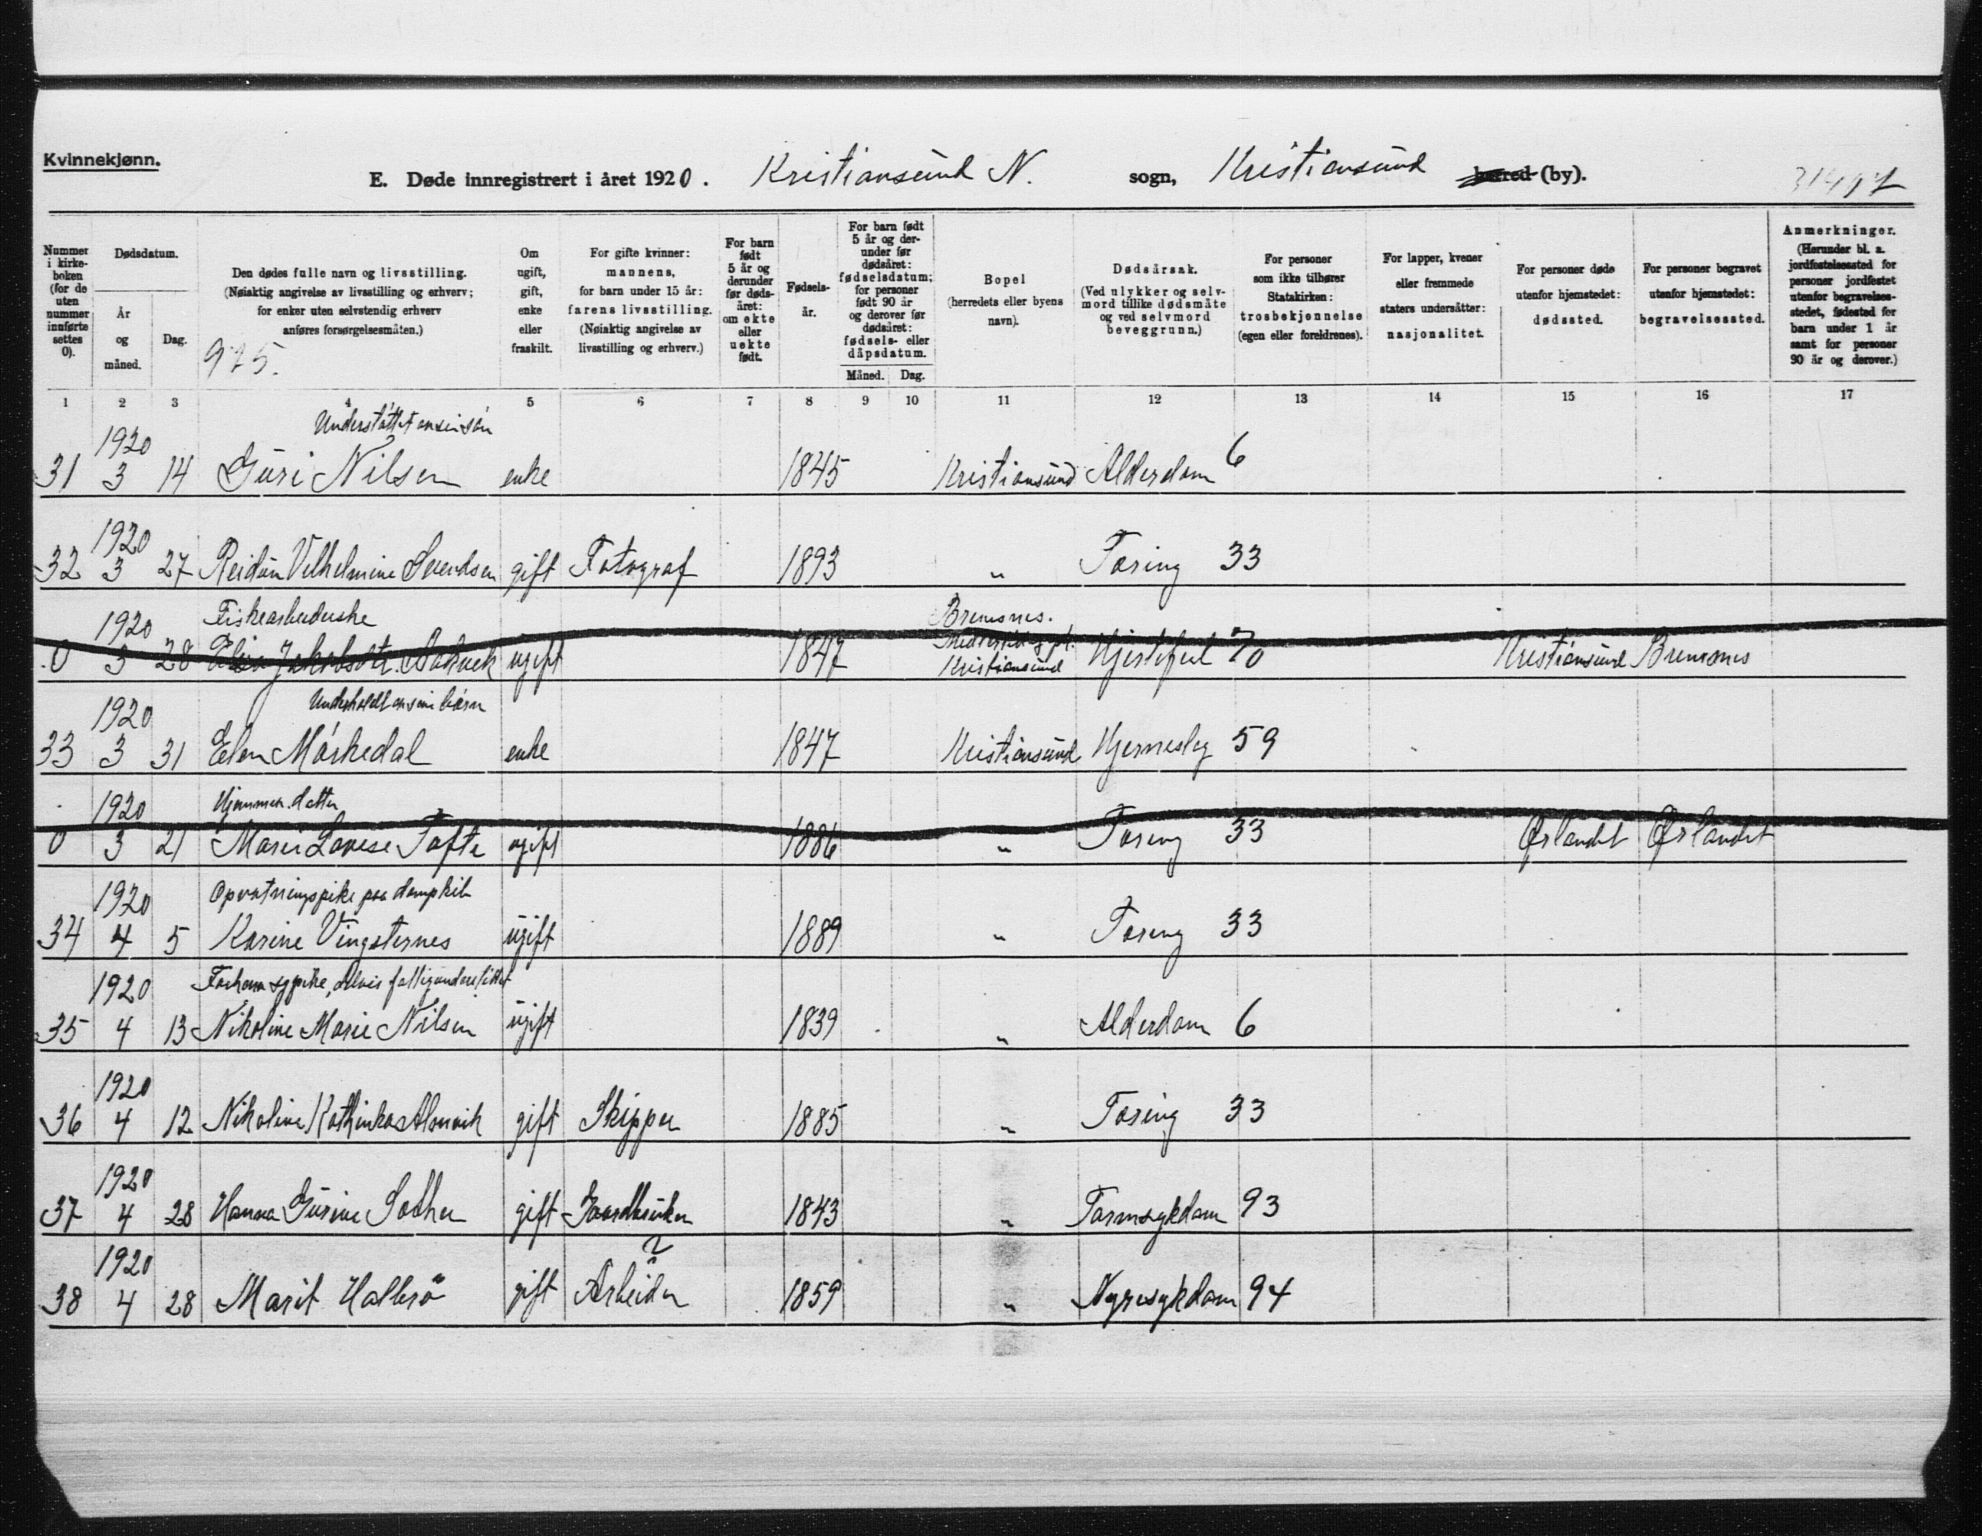 Kvinnekjønn.
E. Døde innregistrert i året 1920. Kristiansund N. sogn, Kristiansund herred (by).
Nummer i kirkeboken (for de uten nummer innførte settes 0).
Dødsdatum.
År og måned.
Dag.
Den dødes fulle navn og livsstilling. (Nøiaktig angivelse av livsstilling og erhverv; for enker uten selvstendig erhverv anføres forsørgelsesmåten.)
975.
Om ugift, gift, enke eller fraskilt.
For gifte kvinner: mannens, for barn under 15 år: farens livsstilling. (Nøiaktig angivelse av livsstilling og erhverv.)
For barn født 5 år og derunder før dødsåret: om ekte eller uekte født.
Fødselsår.
For barn født 5 år og derunder før dødsåret: fødselsdatum; for personer født 90 år og derover før dødsåret: fødsels- eller dåpsdatum.
Måned. Dag.
Bopel (herredets eller byens navn).
Dødsårsak. (Ved ulykker og selvmord tillike dødsmåte og ved selvmord beveggrunn.)
For personer som ikke tilhører Statskirken: trosbekjennelse (egen eller foreldrenes).
For lapper, kvener eller fremmede staters undersåtter: nasjonalitet.
For personer døde utenfor hjemstedet: dødssted.
For personer begravet utenfor hjemstedet: begravelsessted.
Anmerkninger. (Herunder bl. a. jordfestelsessted for personer jordfestet utenfor begravelsesstedet, fødested for barn under 1 år samt for personer 90 år og derover.)
1 2 3 4 5 6 7 8 9 10 11 12 13 14 15 16 17
Understøttet av sin søn
31 1920 3 14 Guri Nilsen enke 1845 Kristiansund Alderdom 6
32 1920 3 27 Reidun Vilhelmine Svendsen gift Fotograf 1893 " Tæring 33
Fiskearbeiderske
0 1920 3 28 Jakobsdt. ugift 1847 Bremsnes. Kristiansund Hjertefeil 70 Kristiansund Bremsnes
Underholdt av sine børn
33 1920 3 31 Elen Mørkedal enke 1847 Kristiansund Hjerneslag 59
Hjemmev. datter
0 1920 3 21 Marie Lovise Tofte ugift 1886 " Tæring 33 Ørlandet Ørlandet
Opvartningspike paa dampskib
34 1920 4 5 Karine Vingsternes ugift 1889 " Tæring 33
35 1920 4 13 Nikoline Marie Nilsen ugift 1839 " Alderdom 6
36 1920 4 12 Nikoline Kathinka Alsvik gift Skipper 1885 " Tæring 33
37 1920 4 28 Hanna Gurine gift Gaardbruker 1843 " Tarmsykdom 93
38 1920 4 28 Marit Halsrø gift Arbeider ? 1859 " Nyresykdom 94